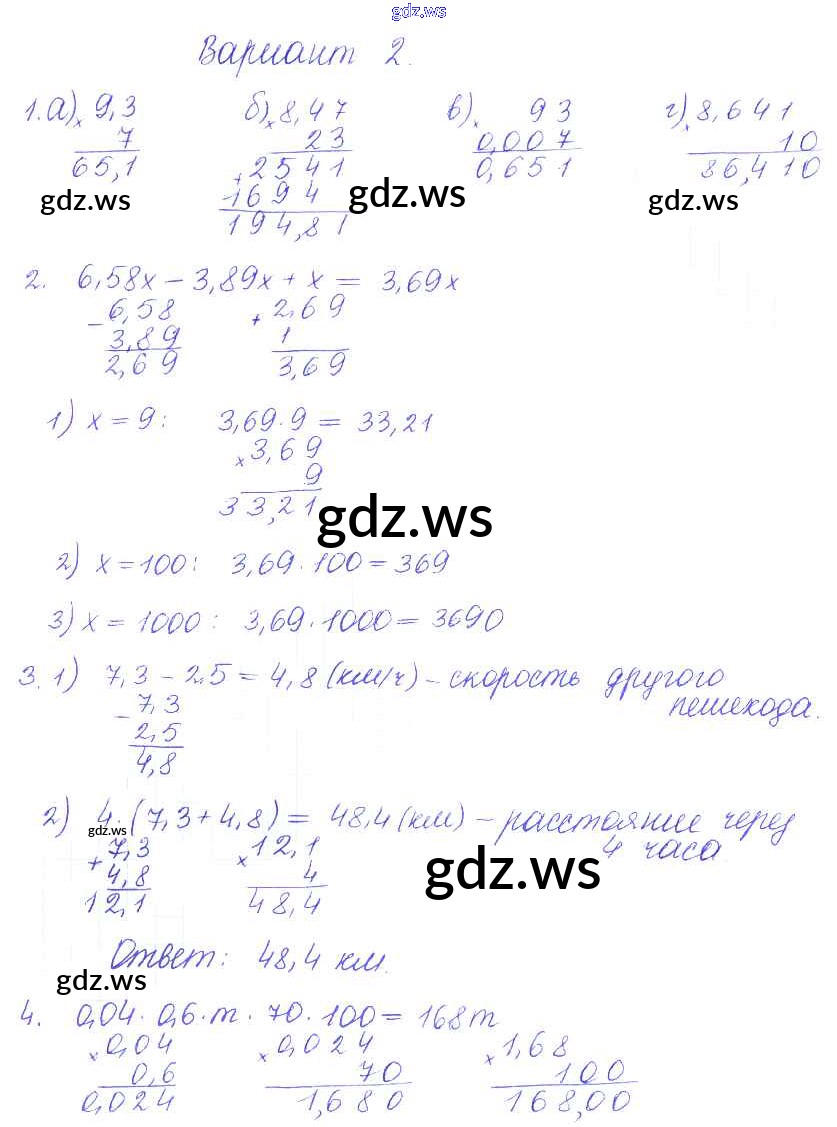 gdz.ws
Вариант 2.
1. а) × 9,3 б) × 8,47 в) × 93 г) × 8,641
7 23 0,007 10
65,1 + 2541 0,651 86,410
gdz.ws 1694 gdz.ws gdz.ws
194,81
2. 6,58x - 3,89x + x = 3,69x
- 6,58 + 2,69
3,89 1
2,69 3,69
1) x = 9: 3,69·9 = 33,21
× 3,69
9
33,21
gdz.ws
2) x = 100: 3,69·100 = 369
3) x = 1000: 3,69·1000 = 3690
3. 1) 7,3 - 2,5 = 4,8 (км/ч) - скорость другого
пешехода.
- 7,3
2,5
4,8
2) 4·(7,3 + 4,8) = 48,4 (км) - расстояние через
4 часа
gdz.ws
+ 7,3 × 12,1
4,8 4
12,1 48,4
gdz.ws
Ответ: 48,4 км.
gdz.ws
4. 0,04·0,6·m·70·100 = 168m
× 0,04 × 0,024 × 1,68
0,6 70 100
0,024 1,680 168,00